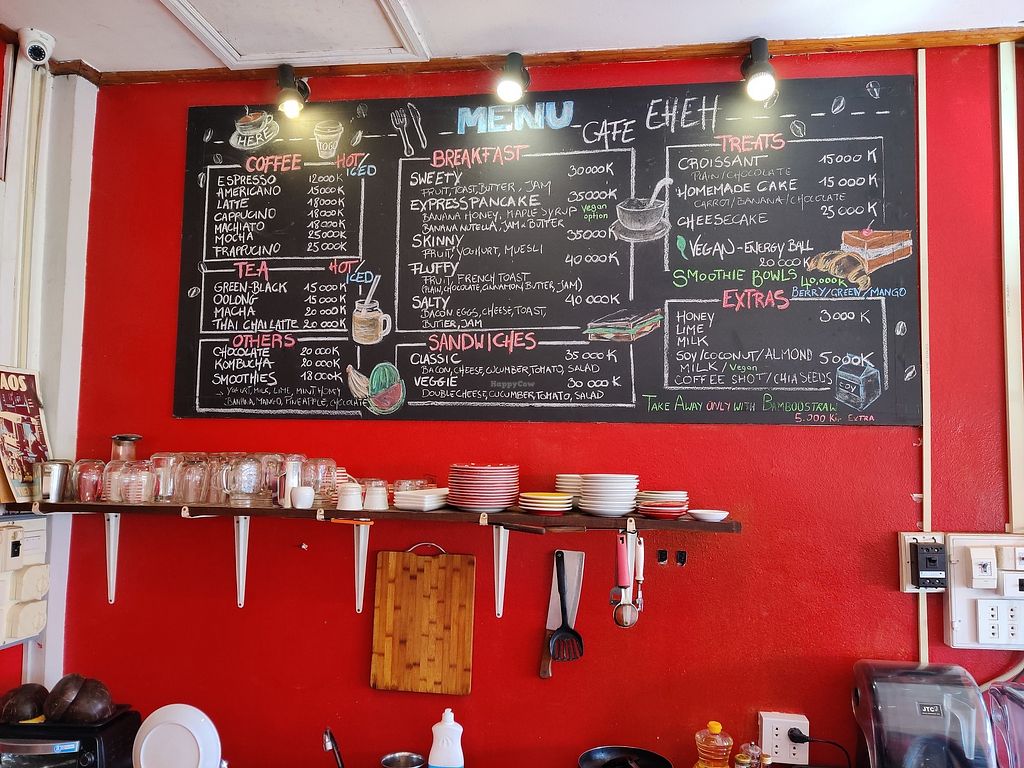 MENU
CAFE EHEH
HERE
TOGO
COFFEE HOT/ICED
ESPRESSO 12000K
AMERICANO 15000K
LATTE 18000K
CAPPUCINO 18000K
MACHIATO 18000K
MOCHA 25000K
FRAPPUCINO 25000K
TEA HOT/ICED
GREEN-BLACK 15000K
OOLONG 15000K
MACHA 20000K
THAI CHAI LATTE 20000K
OTHERS
CHOCOLATE 20000K
KOMBUCHA 20000K
SMOOTHIES 18000K
YOGURT, MILK, LIME, MINT, HONEY
BANANA, MANGO, PINEAPPLE, CHOCOLATE
BREAKFAST
SWEETY 30000K
FRUIT, TOAST, BUTTER, JAM
EXPRESS PANCAKE 35000K
BANANA HONEY, MAPLE SYRUP Vegan option
BANANA NUTELLA, JAM & BUTTER
SKINNY 35000K
FRUIT, YOGHURT, MUESLI
FLUFFY 40000K
FRUIT, FRENCH TOAST
(PLAIN, CHOCOLATE, CINNAMON, BUTTER, JAM)
SALTY 40000K
BACON, EGGS, CHEESE, TOAST,
BUTTER, JAM
SANDWICHES
CLASSIC 35000K
BACON, CHEESE, CUCUMBER, TOMATO, SALAD
VEGGIE 30000K
DOUBLE CHEESE, CUCUMBER, TOMATO, SALAD
TREATS
CROISSANT 15000K
PLAIN/CHOCOLATE
HOMEMADE CAKE 15000K
CARROT/BANANA/CHOCOLATE
CHEESECAKE 25000K
VEGAN-ENERGY BALL
20000K
SMOOTHIE BOWLS 40,000K
BERRY/GREEN/MANGO
EXTRAS
HONEY 3000K
LIME
MILK
SOY/COCONUT/ALMOND 5000K
MILK/Vegan
COFFEE SHOT/CHIA SEEDS
SOY
MILK
TAKE AWAY ONLY WITH BAMBOUSTRAW
5.000 K EXTRA
HappyCow
AOS
JTC